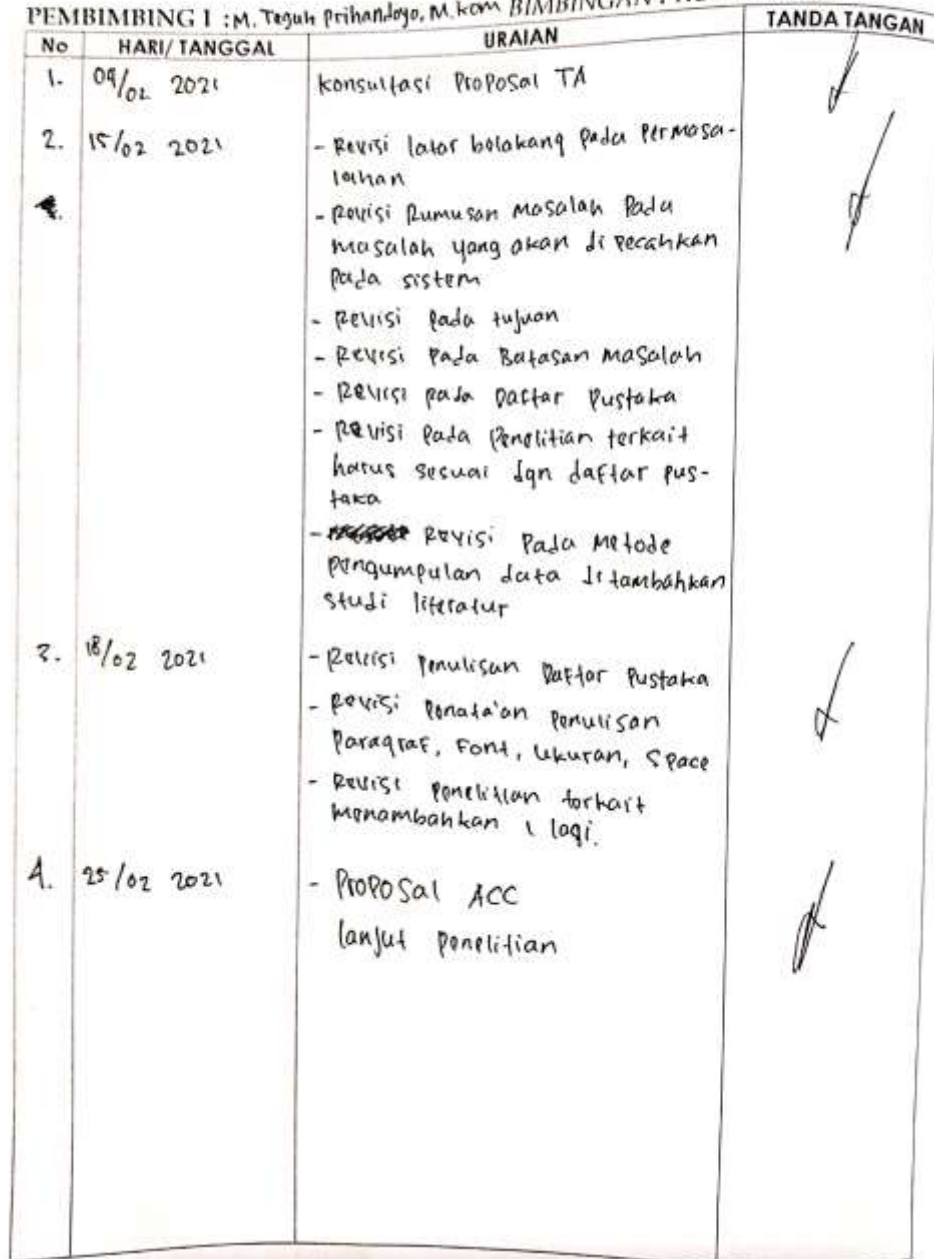 PEMBIMBING I : M. Teguh Prihandoyo, M.kom BIMBINGAN
No HARI/ TANGGAL URAIAN TANDA TANGAN
1. 09/02 2021 Konsultasi Proposal TA
2. 15/02 2021 - Revisi latar belakang pada Permasa-
lahan
- Revisi Rumusan Masalah Pada
masalah yang akan di pecahkan
pada sistem
- Revisi pada tujuan
- Revisi pada Batasan Masalah
- Revisi pada Daftar Pustaka
- Revisi Pada Penelitian terkait
harus sesuai dgn daftar pus-
taka
- Revisi Pada Metode
pengumpulan data ditambahkan
studi literatur
3. 18/02 2021 - Revisi Penulisan Daftar Pustaka
- Revisi Penata'an Penulisan
Paragraf, Font, Ukuran, Space
- Revisi penelitian terkait
menambahkan 1 lagi.
4. 25/02 2021 - Proposal ACC
lanjut penelitian